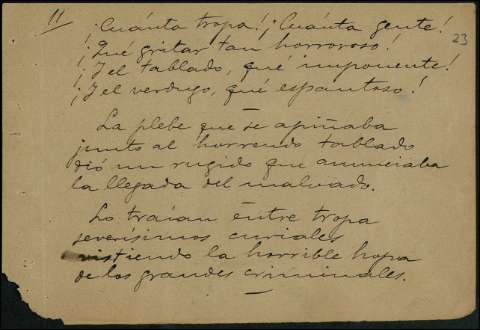 11
¡Cuánta tropa! ¡Cuánta gente!
23
¡Qué gritar tan horroroso!
¡Y el tablado, qué imponente!
¡Y el verdugo, qué espantoso!
La plebe que se apiñaba
junto al horrendo tablado
dió un rugido que anunciaba
la llegada del malvado.
Lo traían entre tropa
severísimos curiales
vistiendo la horrible hopa
de los grandes criminales.